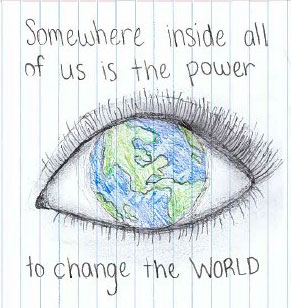 Somewhere inside all
of us is the power
to change the WORLD